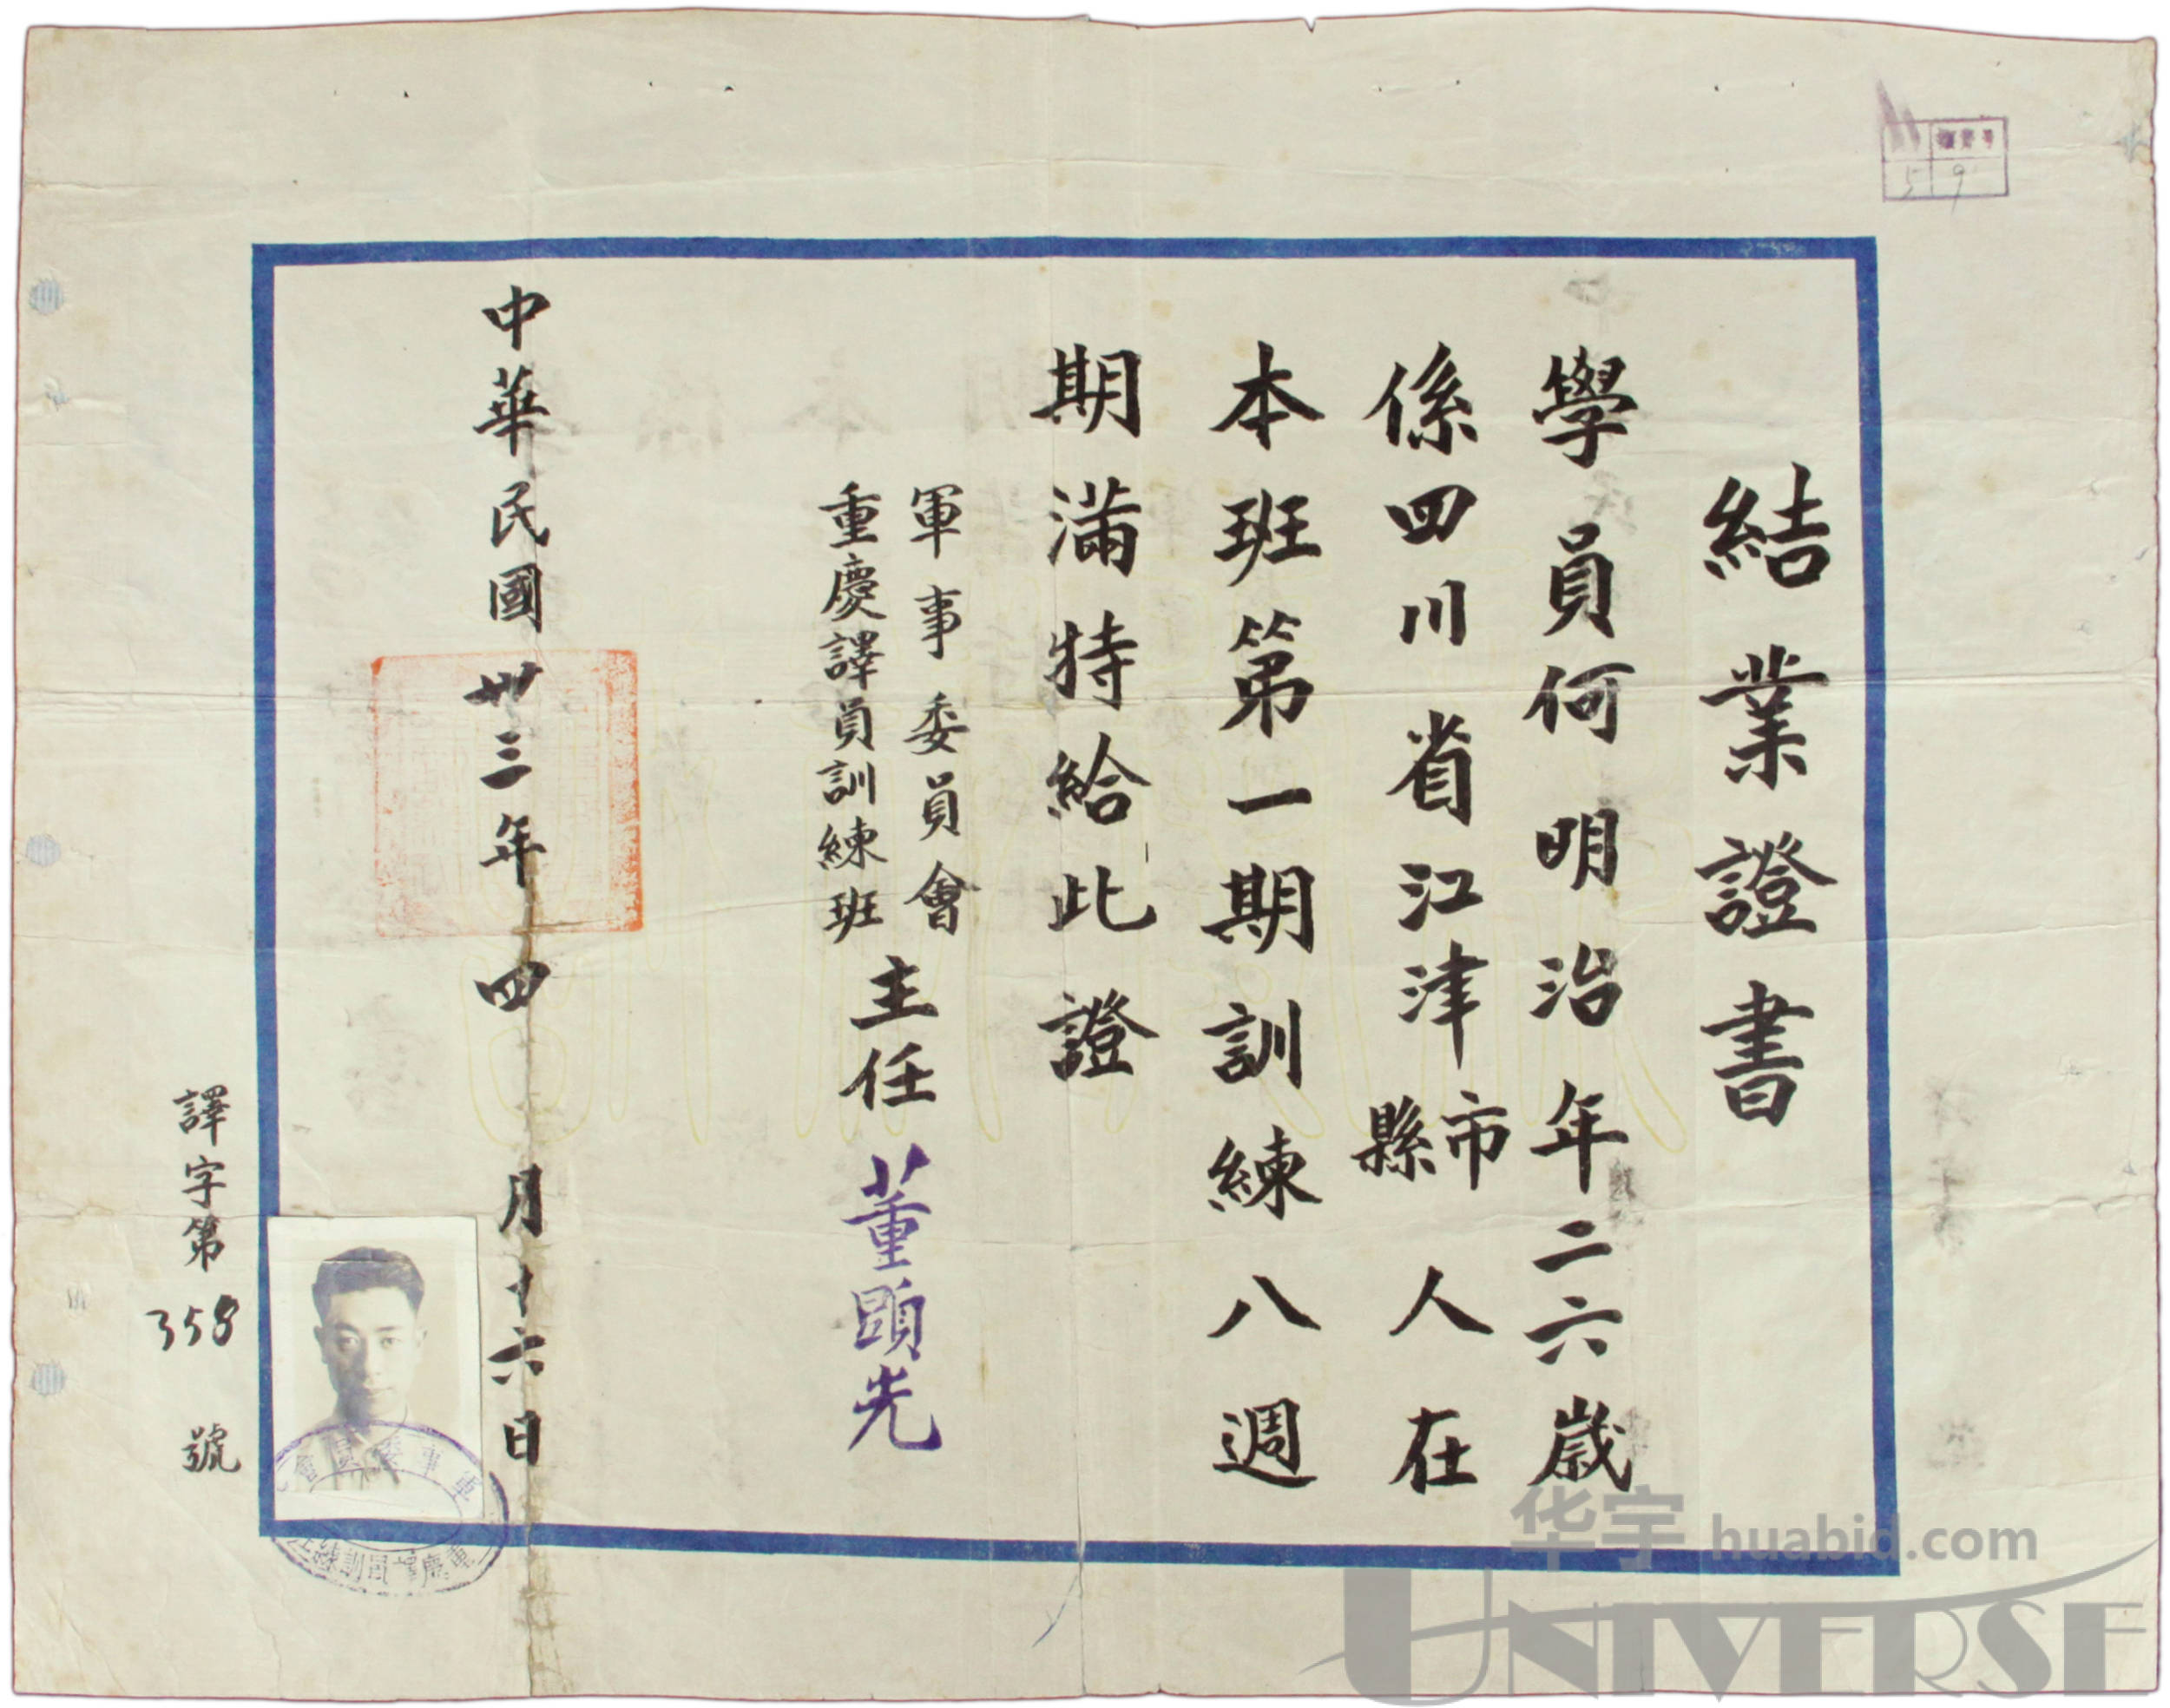 結業證書
學員何明治年二六歲
係四川省江津市縣人在
本班第一期訓練八週
期滿特給此證
軍事委員會
重慶譯員訓練班
主任
董顯光
中華民國卅三年四月十六日
譯字第358號
5 9
华宇 huabid.com
UNIVERSE